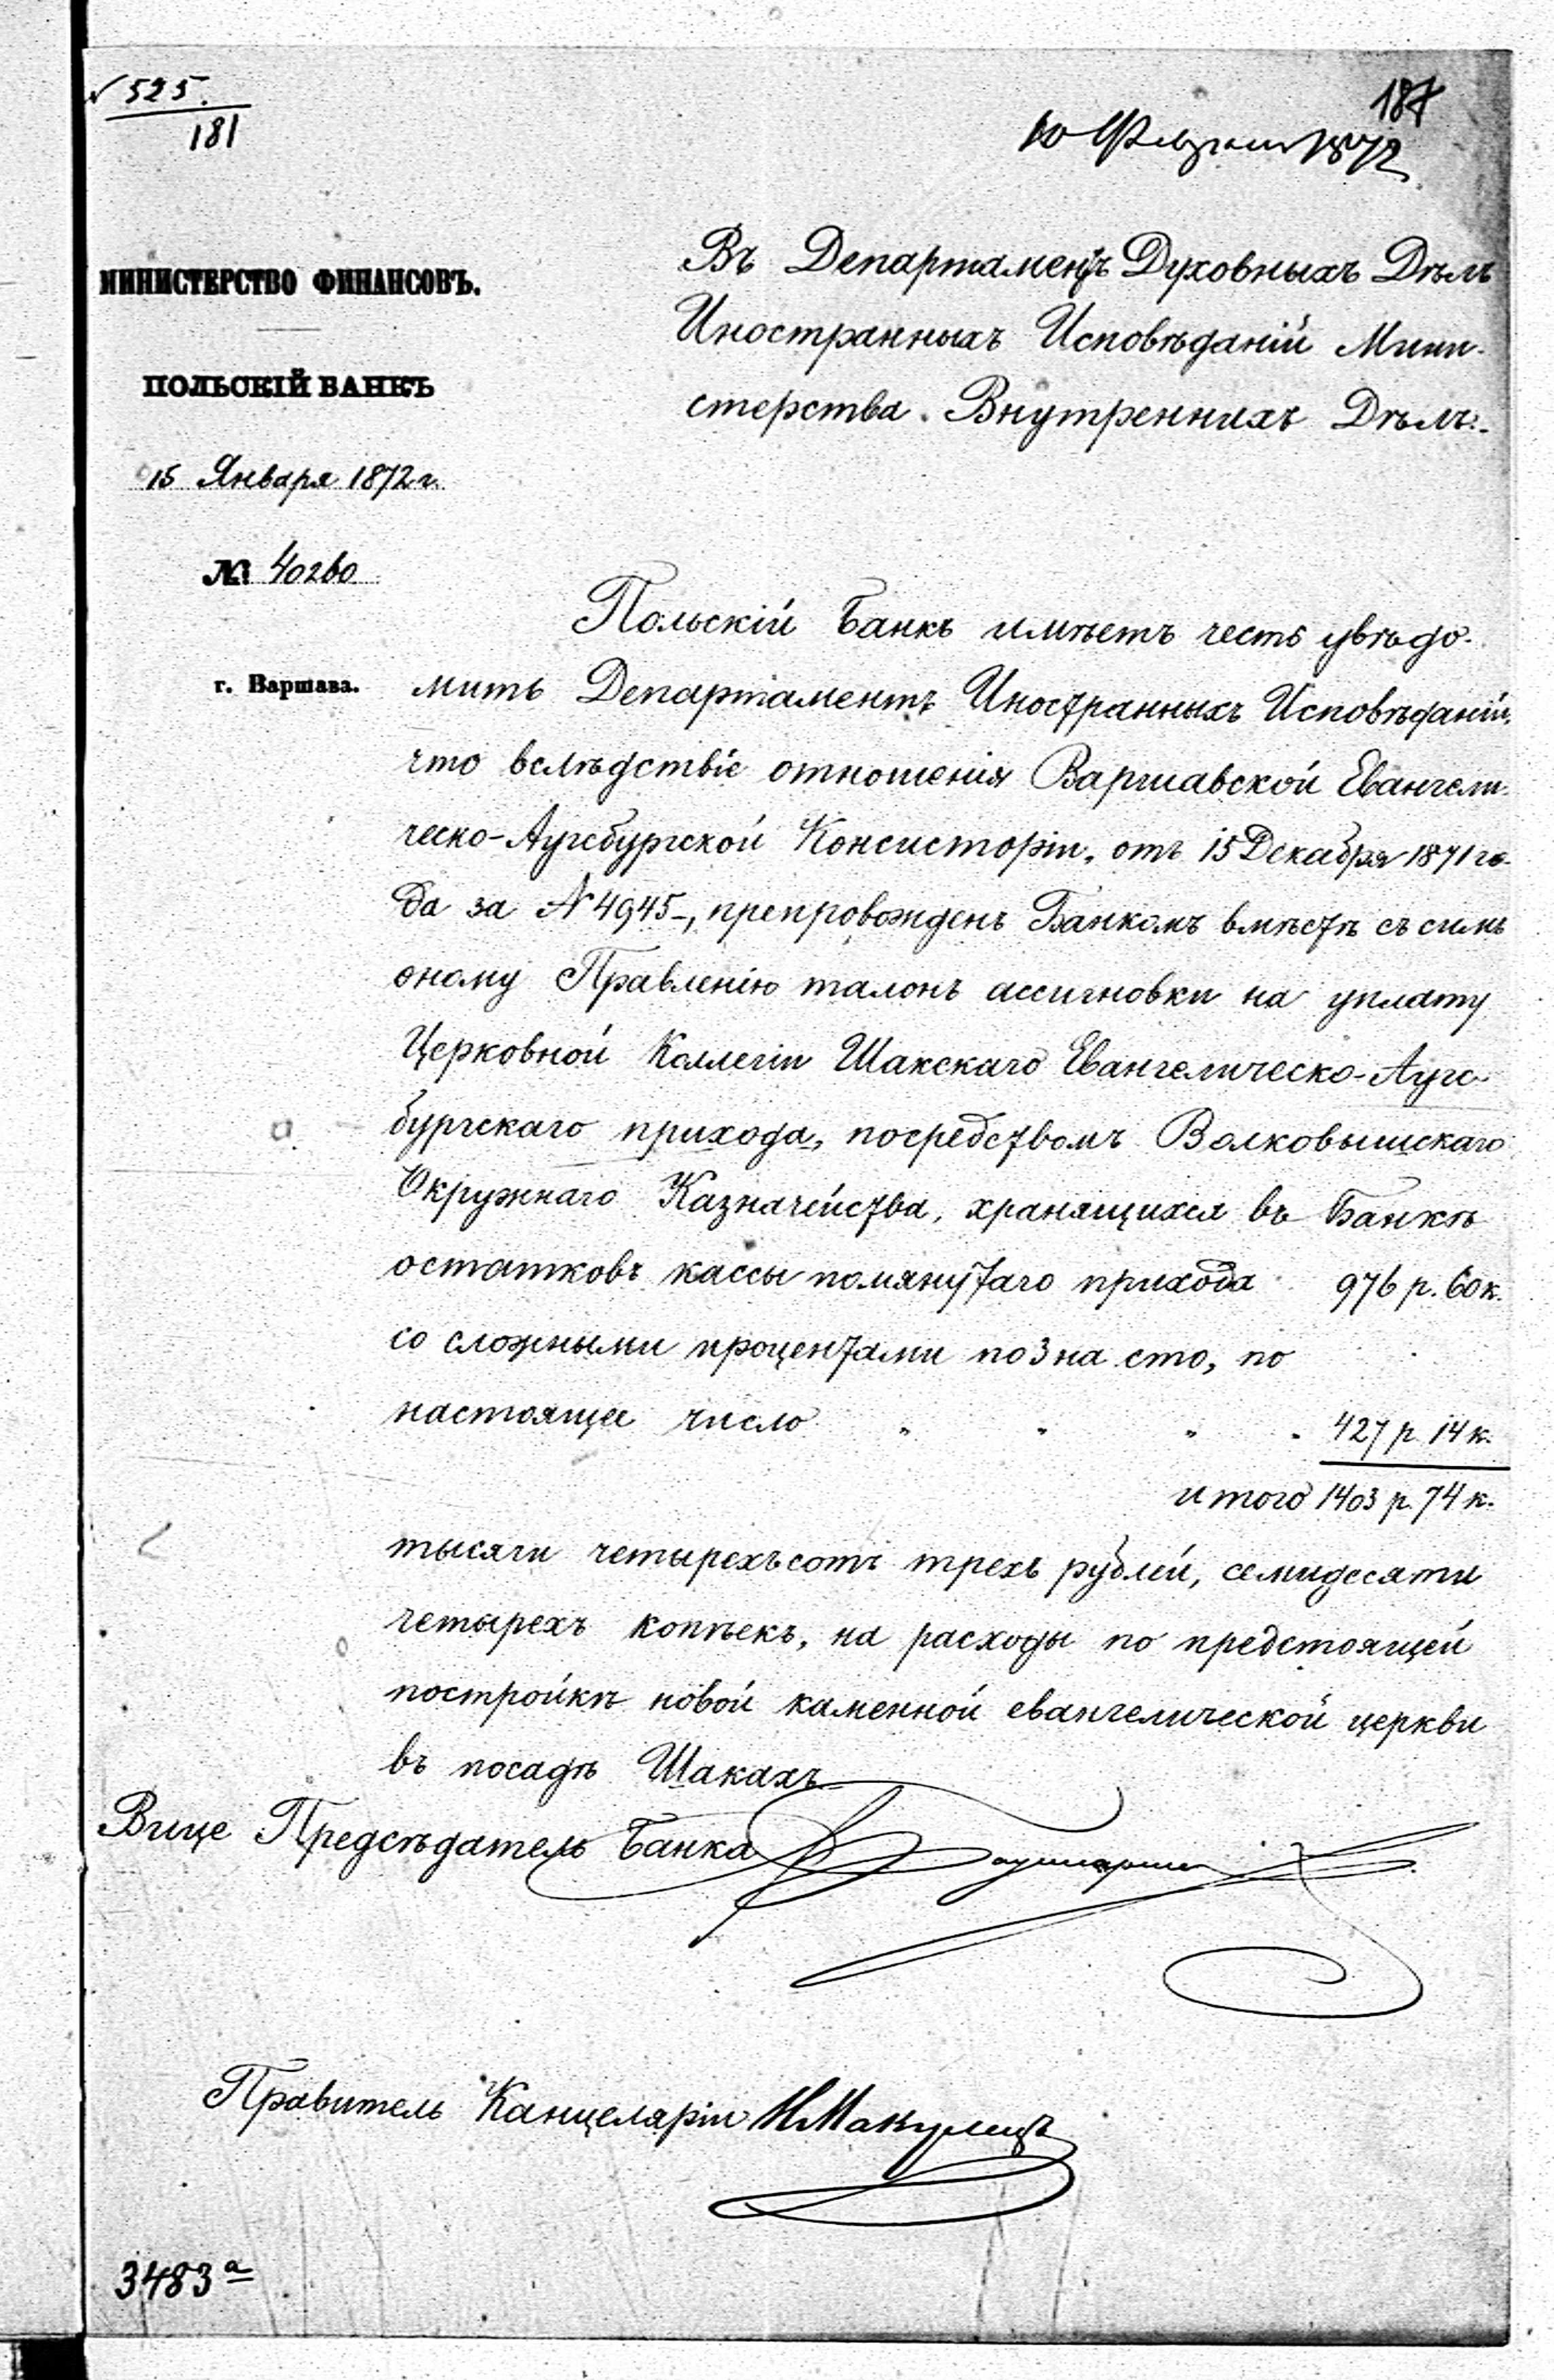 № 525.
181
187
10 Февраля 1872
МИНИСТЕРСТВО ФИНАНСОВЪ.
ПОЛЬСКІЙ БАНКЪ
15 Января 1872 г.
№ 40260
г. Варшава.
Въ Департаментъ Духовныхъ Дѣлъ
Иностранныхъ Исповѣданій Мини-
стерства Внутреннихъ Дѣлъ.
Польскій Банкъ имѣетъ честь увѣдо-
мить Департаментъ Иностранныхъ Исповѣданій,
что вслѣдствіе отношенія Варшавской Евангели-
ческо-Аугсбургской Консисторіи, отъ 15 Декабря 1871 го-
да за № 4945, препровожденъ Банкомъ вмѣстѣ съ симъ
оному Правленію талонъ ассигновки на уплату
Церковной Коллегіи Шакскаго Евангелическо-Аугс-
бургскаго прихода, посредствомъ Волковышскаго
Окружнаго Казначейства, хранящихся въ Банкѣ
остатковъ кассы помянутаго прихода 976 р. 60 к.
со сложными процентами по 3 на сто, по
настоящее число " " " " 427 р. 14 к.
итого 1403 р. 74 к.
тысячи четырехъ сотъ трехъ рублей, семидесяти
четырехъ копѣекъ, на расходы по предстоящей
постройкѣ новой каменной евангелической церкви
въ посадѣ Шакахъ
Вице Предсѣдатель Банка
Правитель Канцеляріи
3483 а